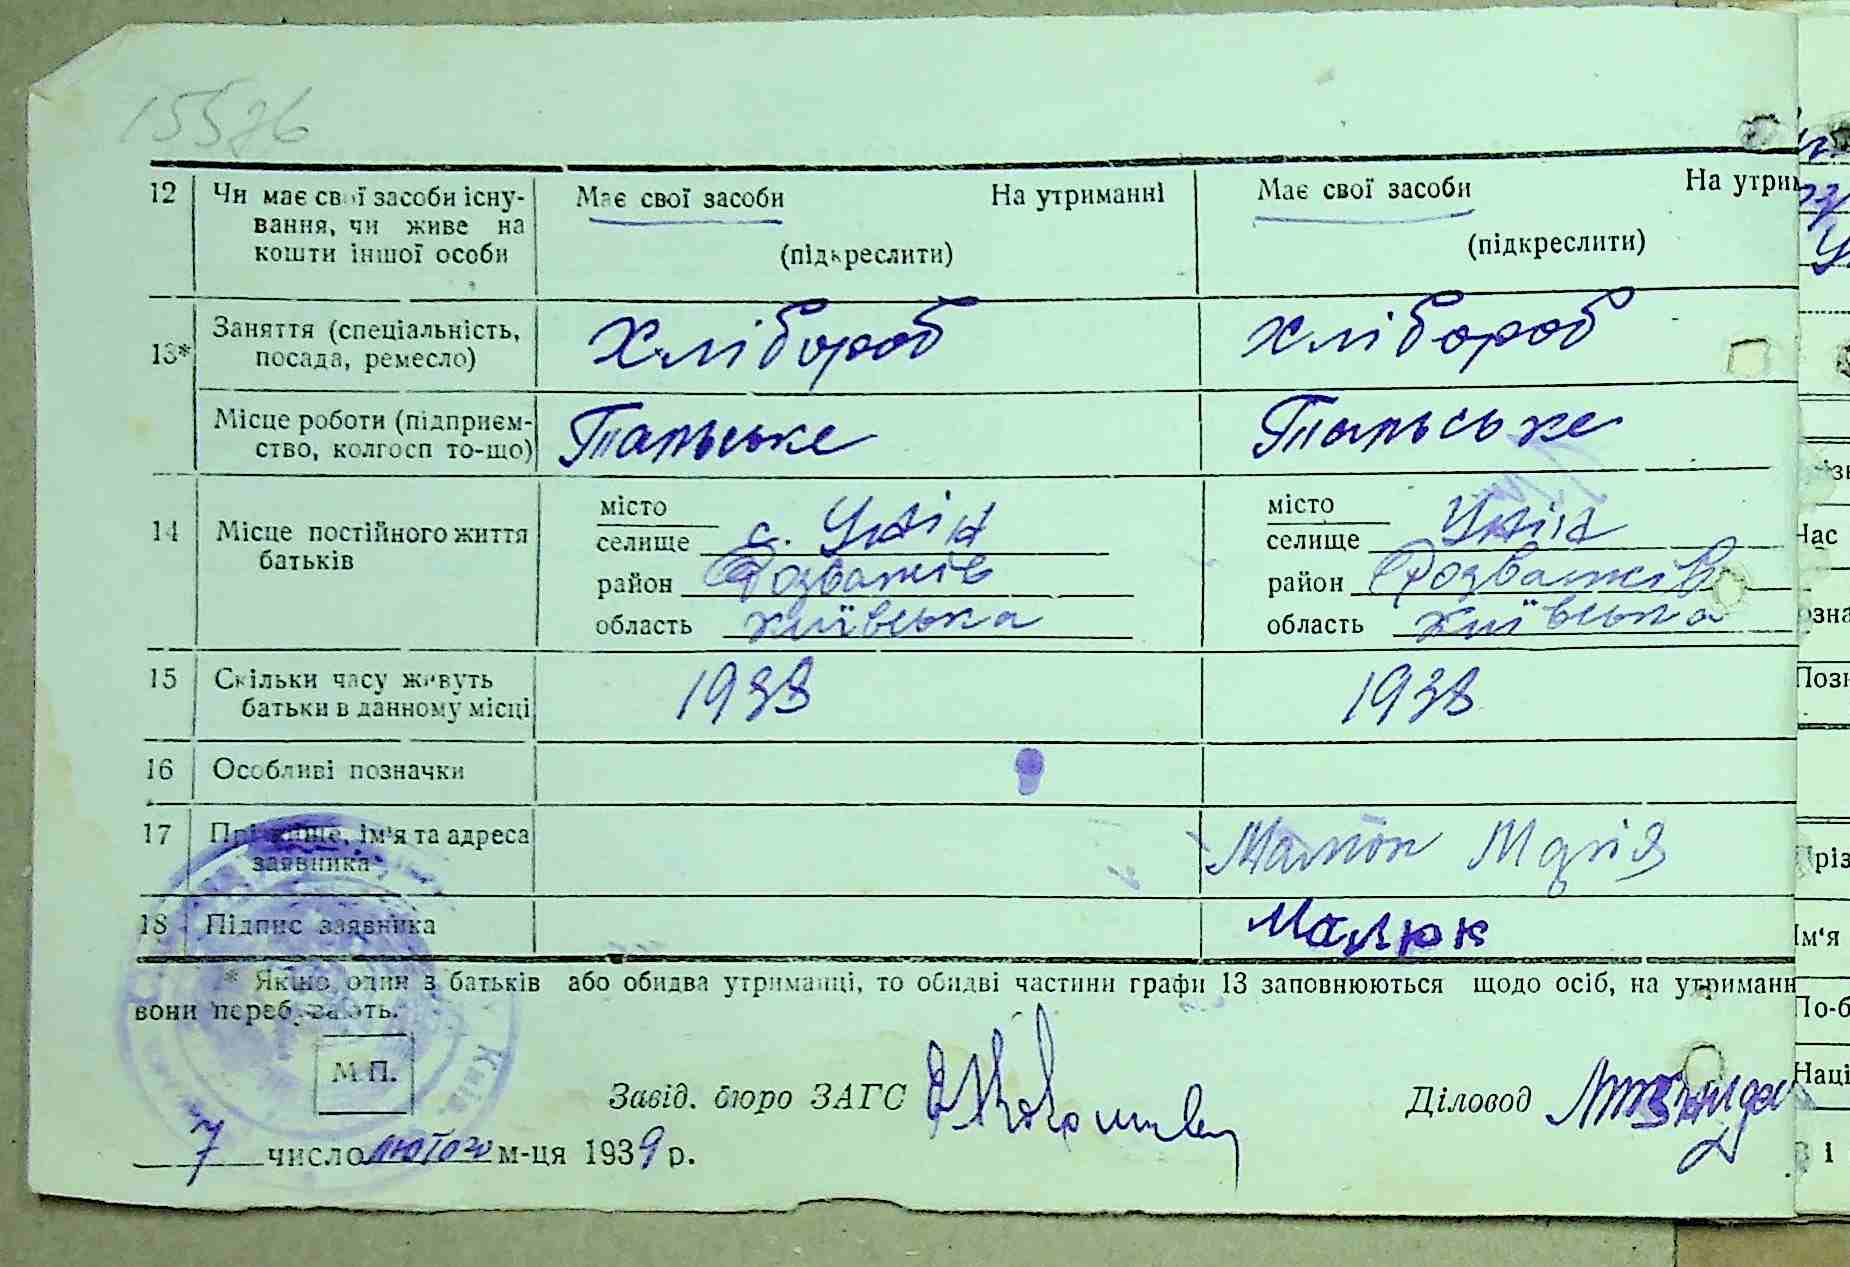 15576
12 Чи має свої засоби існу- Має свої засоби На утриманні Має свої засоби На утрим
вання, чи живе на
кошти іншої особи (підкреслити) (підкреслити)
13* Заняття (спеціальність, Хлібороб Хлібороб
посада, ремесло)
Місце роботи (підприєм- Тальське Тальське
ство, колгосп то-що)
14 Місце постійного життя місто місто
батьків селище с. Унін селище Унін
район Розважів район Розважів
область київська область київська
15 Скільки часу живуть 1938 1938
батьки в данному місці
16 Особливі позначки
17 Прізвище, ім'я та адреса Малюк Марія
заявника
18 Підпис заявника Малюк
* Якщо один з батьків або обидва утриманці, то обидві частини графи 13 заповнюються щодо осіб, на утриманн
вони перебувають.
М.П.
Завід. бюро ЗАГС Діловод
7 число лютого м-ця 1939 р.